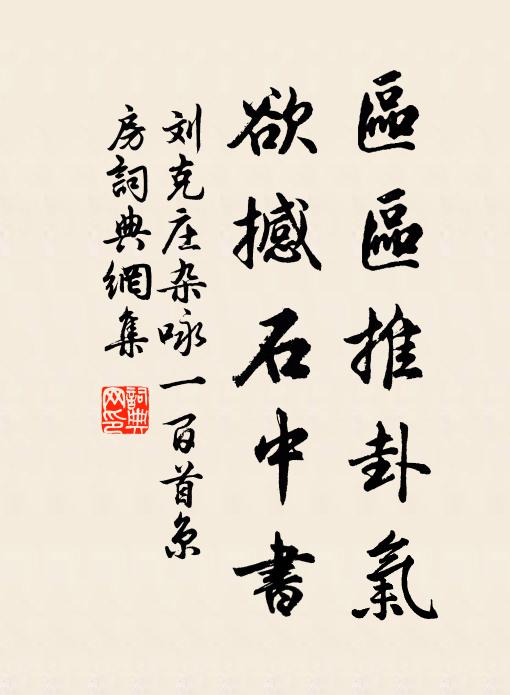 區區推卦氣
欲撼石中書
刘克庄杂咏一百首京
房詞典網集
詞典网印